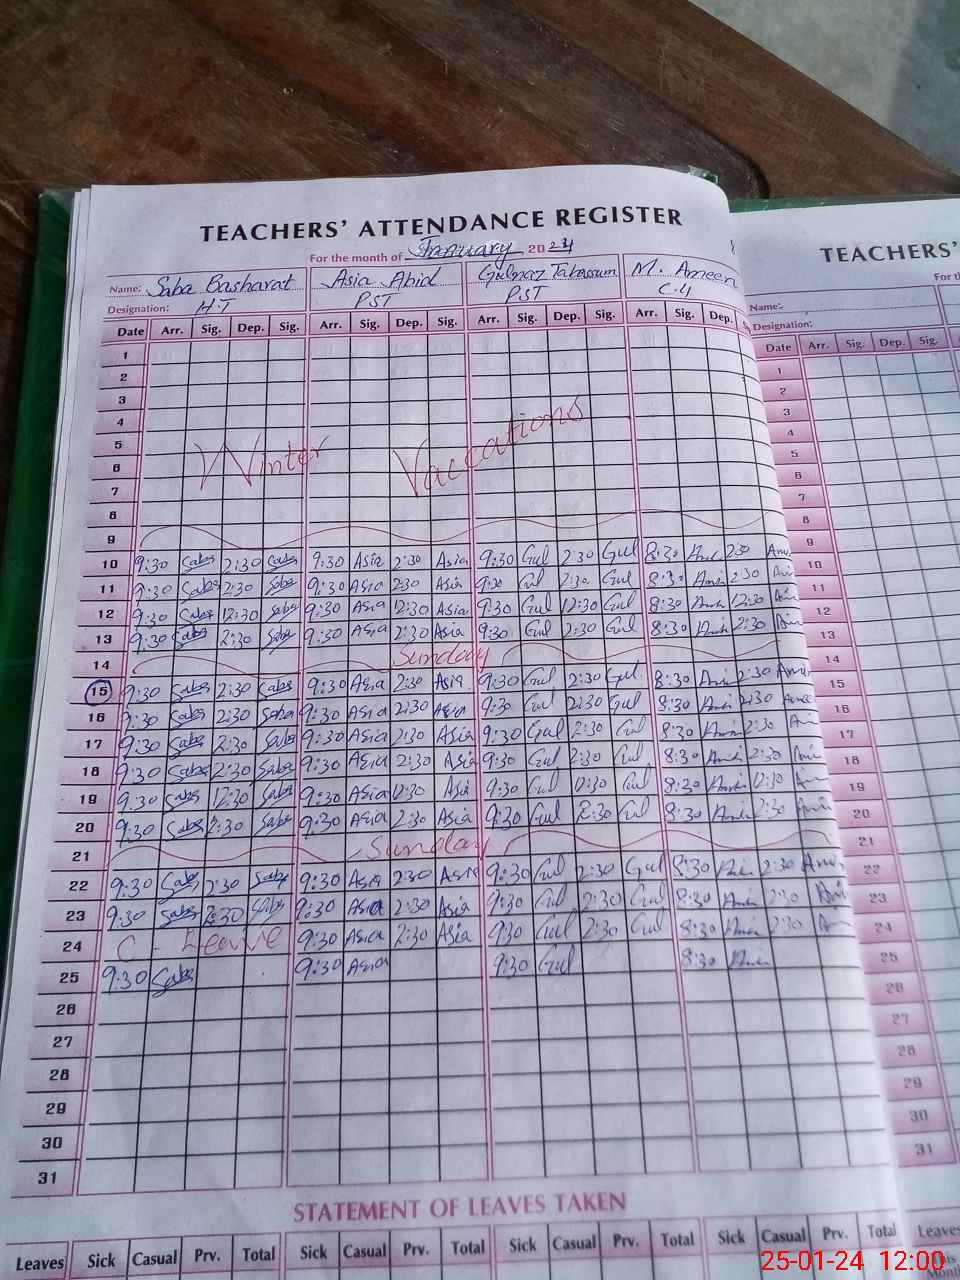 TEACHERS' ATTENDANCE REGISTER
For the month of January 2024
Name: Saba Basharat Asia Abid Gulnaz Tabassum M. Ameen
Designation: H.T PST PST C.4
Date Arr. Sig. Dep. Sig. Arr. Sig. Dep. Sig. Arr. Sig. Dep. Sig. Arr. Sig. Dep.
1
2
3
4
5
6
7
8
9
Winter Vaccations
10 9:30 Saba 2:30 Saba 9:30 Asia 2:30 Asia 9:30 Gul 2:30 Gul 8:30 2:30
11 9:30 Saba 2:30 Saba 9:30 Asia 2:30 Asia 9:30 Gul 2:30 Gul 8:30 2:30
12 9:30 Saba 12:30 Saba 9:30 Asia 12:30 Asia 9:30 Gul 12:30 Gul 8:30 12:30
13 9:30 Saba 2:30 Saba 9:30 Asia 2:30 Asia 9:30 Gul 2:30 Gul 8:30 2:30
14 Sunday
15 9:30 Saba 2:30 Saba 9:30 Asia 2:30 Asia 9:30 Gul 2:30 Gul 8:30 2:30
16 9:30 Saba 2:30 Saba 9:30 Asia 2:30 Asia 9:30 Gul 2:30 Gul 8:30 2:30
17 9:30 Saba 2:30 Saba 9:30 Asia 2:30 Asia 9:30 Gul 2:30 Gul 8:30 2:30
18 9:30 Saba 2:30 Saba 9:30 Asia 2:30 Asia 9:30 Gul 2:30 Gul 8:30 2:30
19 9:30 Saba 12:30 Saba 9:30 Asia 12:30 Asia 9:30 Gul 12:30 Gul 8:30 12:30
20 9:30 Saba 2:30 Saba 9:30 Asia 2:30 Asia 9:30 Gul 2:30 Gul 8:30 2:30
21 Sunday
22 9:30 Saba 2:30 Saba 9:30 Asia 2:30 Asia 9:30 Gul 2:30 Gul 8:30 2:30
23 9:30 Saba 2:30 Saba 9:30 Asia 2:30 Asia 9:30 Gul 2:30 Gul 8:30 2:30
24 C - Leavve 9:30 Asia 2:30 Asia 9:30 Gul 2:30 Gul 8:30 2:30
25 9:30 Saba 9:30 Asia 9:30 Gul 8:30
26
27
28
29
30
31
STATEMENT OF LEAVES TAKEN
Leaves Sick Casual Prv. Total Sick Casual Prv. Total Sick Casual Prv. Total Sick Casual Prv. Total
TEACHERS'
For th
Name:
Designation:
Date Arr. Sig. Dep. Sig.
1
2
3
4
5
6
7
8
9
10
11
12
13
14
15
16
17
18
19
20
21
22
23
24
25
26
27
28
29
30
31
Leaves
Month
25-01-24 12:00